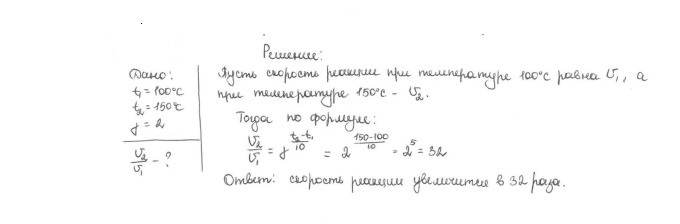 Решение:
Дано:
t₁ = 100°C
t₂ = 150°C
γ = 2
υ₂/υ₁ - ?
Пусть скорость реакции при температуре 100°C равна υ₁, а
при температуре 150°C - υ₂.
Тогда по формуле:
υ₂/υ₁ = γ^((t₂-t₁)/10) = 2^((150-100)/10) = 2⁵ = 32
Ответ: скорость реакции увеличится в 32 раза.